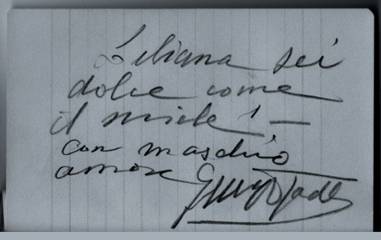 Liliana sei
dolce come
il miele! —
con maschio
amore